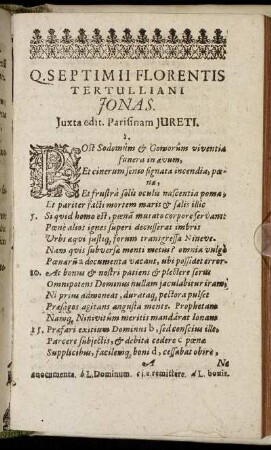 Q. SEPTIMII FLORENTIS
TERTULLIANI
JONAS.
Juxta edit. Parisinam JURETI.
1.
POst Sodomûm & Gomorûm viventia
funera in ævum,
Et cinerum senio signata incendia, pœ-
na,
Et frustrà solis oculis nascentia poma,
Et pariter facti mortem maris & salis illic
5. Si quid homo est, pœnâ mutato corpore servans
Penè alios ignes superi decusserat imbris
Urbi æqui justiq́, forum transgressa Nineve.
Nam quis subversæ menti metus? omnia vulgò
Pœnarũ a documenta vacant, ubi possidet error.
10. At bonus & nostri patiens & plectere serus
Omnipotens Dominus nullam jaculabitur iram,
Ni prius admoneat, durataq́, pectora pulset
Præsagos agitans augusta mente Prophetas.
Namq́, Ninivitûm meritis mandârat Ionam
15. Præfari exitium Dominus b, sed conscius ille,
Parcere subjectis, & debita cedere c pœnæ
Supplicibus, facilemq́, boni d, cessabat obire,
A
Na
a L. Dominum. c i. e. remittere. d L. bonis.